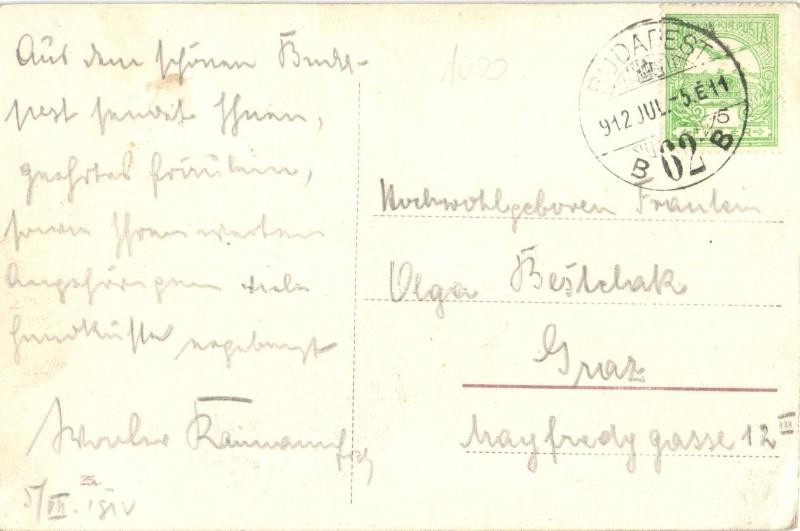 Aus dem schönen Buda-
pest sendet Ihnen,
geehrtes Fräulein,
sowie Ihren werten
Angehörigen viele
Handküsse ergebenst
Raimann
5/VII. 1912
25.
1000
MAGYAR KIR. POSTA
BUDAPEST
912 JUL.-5.É11
B 62 B
Hochwohlgeboren Fräulein
Olga Beštchak
Graz
Mayfredygasse 12 III